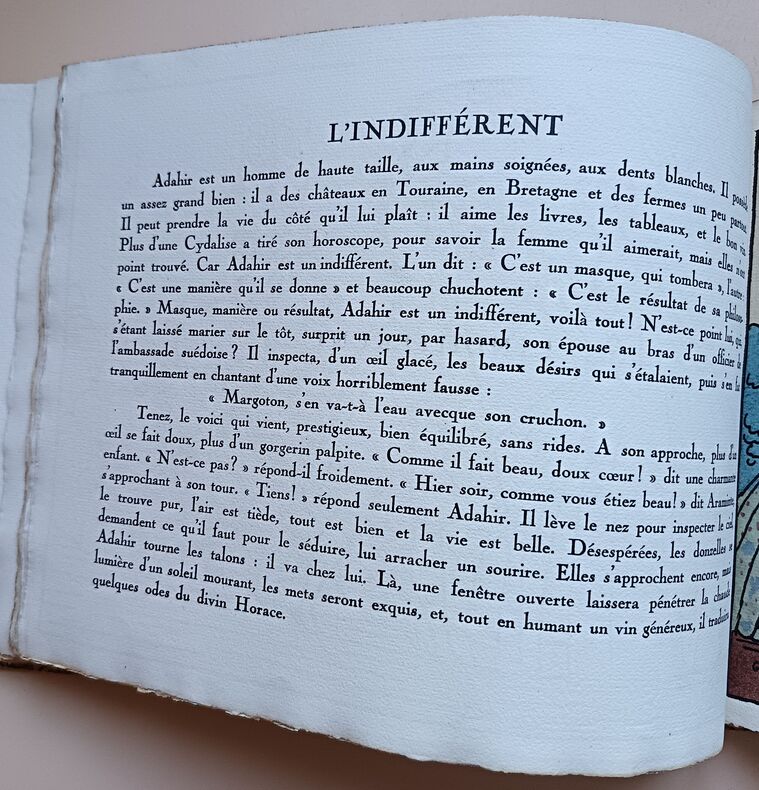 L'INDIFFÉRENT
Adahir est un homme de haute taille, aux mains soignées, aux dents blanches. Il possède
un assez grand bien : il a des châteaux en Touraine, en Bretagne et des fermes un peu partout.
Il peut prendre la vie du côté qu'il lui plaît : il aime les livres, les tableaux, et le bon vin.
Plus d'une Cydalise a tiré son horoscope, pour savoir la femme qu'il aimerait, mais elles n'ont
point trouvé. Car Adahir est un indifférent. L'un dit : « C'est un masque, qui tombera », l'autre :
« C'est une manière qu'il se donne » et beaucoup chuchotent : « C'est le résultat de sa philoso-
phie. » Masque, manière ou résultat, Adahir est un indifférent, voilà tout! N'est-ce point lui, qui,
s'étant laissé marier sur le tôt, surprit un jour, par hasard, son épouse au bras d'un officier de
l'ambassade suédoise? Il inspecta, d'un œil glacé, les beaux désirs qui s'étalaient, puis s'en fut
tranquillement en chantant d'une voix horriblement fausse :
« Margoton, s'en va-t-à l'eau avecque son cruchon. »
Tenez, le voici qui vient, prestigieux, bien équilibré, sans rides. A son approche, plus d'un
œil se fait doux, plus d'un gorgerin palpite. « Comme il fait beau, doux cœur! » dit une charmante
enfant. « N'est-ce pas? » répond-il froidement. « Hier soir, comme vous étiez beau! » dit Araminte,
s'approchant à son tour. « Tiens! » répond seulement Adahir. Il lève le nez pour inspecter le ciel,
le trouve pur, l'air est tiède, tout est bien et la vie est belle. Désespérées, les donzelles se
demandent ce qu'il faut pour le séduire, lui arracher un sourire. Elles s'approchent encore, mais
Adahir tourne les talons : il va chez lui. Là, une fenêtre ouverte laissera pénétrer la chaude
lumière d'un soleil mourant, les mets seront exquis, et, tout en humant un vin généreux, il traduira
quelques odes du divin Horace.